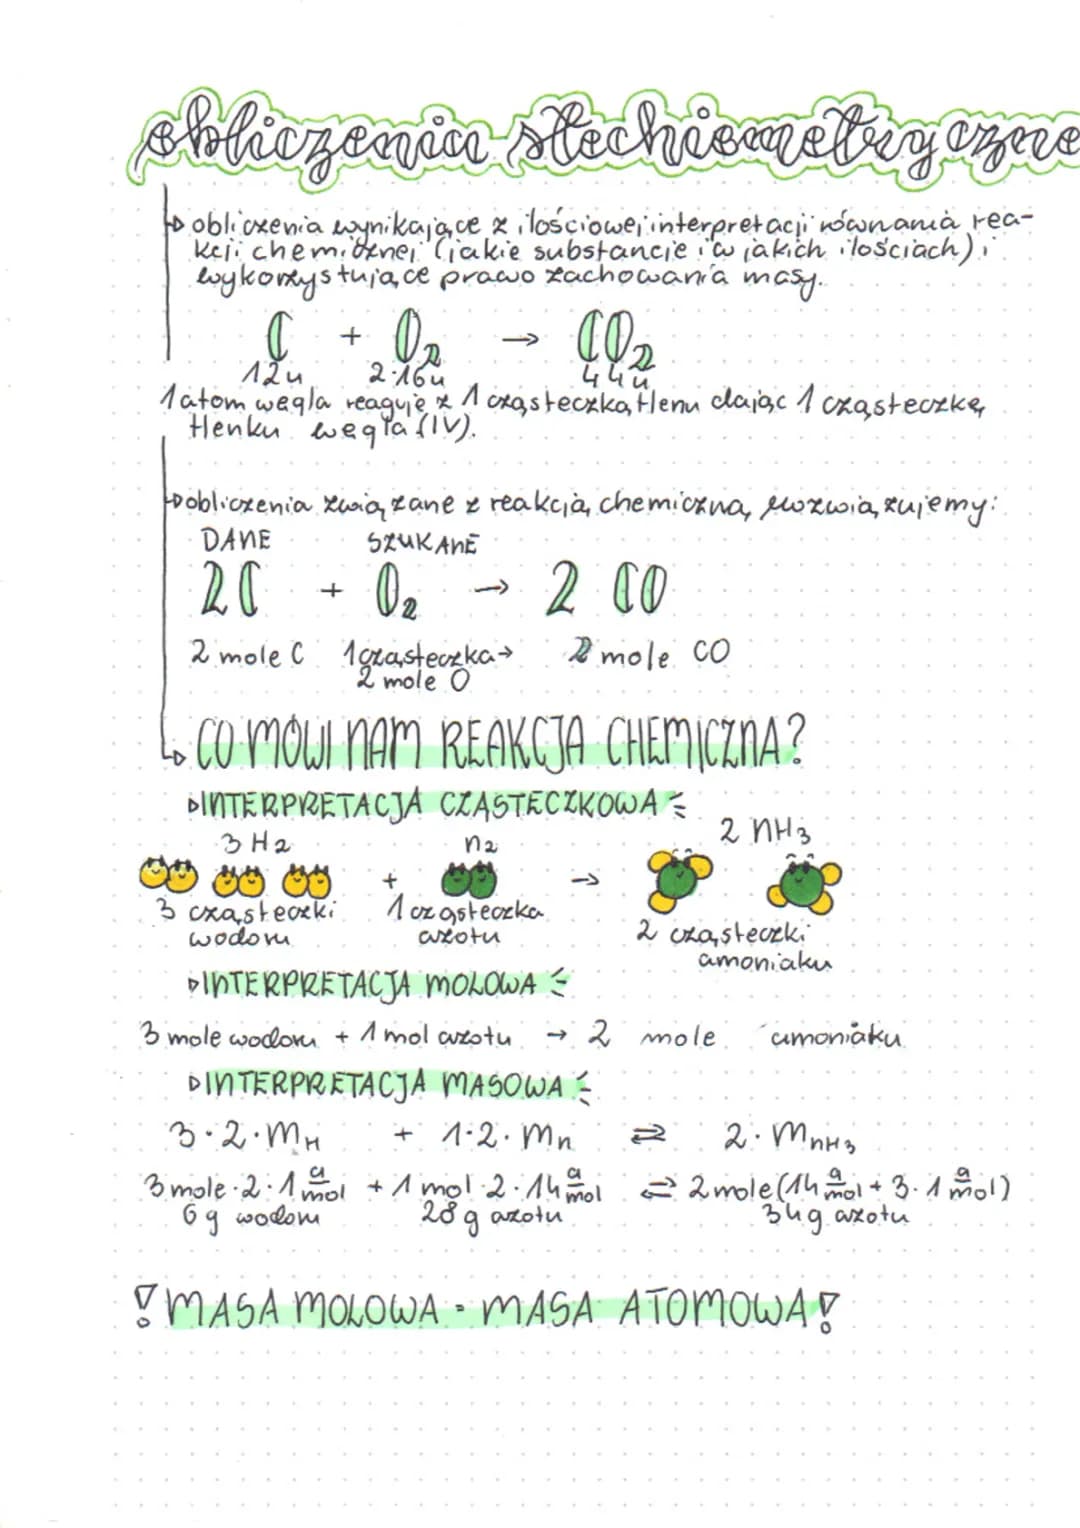 obliczenia stechiometryczne
obliczenia wynikające z ilościowej interpretacji równania rea-
kcji chemicznej (jakie substancje i w jakich ilościach) i
wykorzystujące prawo zachowania masy.
C + O2 → CO2
12u 2·16u 44u
1 atom węgla reaguje z 1 cząsteczką tlenu dając 1 cząsteczkę
tlenku węgla (IV).
obliczenia związane z reakcją chemiczną rozwiązujemy:
DANE SZUKANE
2C + O2 → 2 CO
2 mole C 1 cząsteczka → 2 mole CO
2 mole O
CO MÓWI NAM REAKCJA CHEMICZNA?
INTERPRETACJA CZĄSTECZKOWA
3 H2 N2 2 NH3
+ →
3 cząsteczki 1 cząsteczka 2 cząsteczki
wodoru azotu amoniaku
INTERPRETACJA MOLOWA
3 mole wodoru + 1 mol azotu → 2 mole amoniaku
INTERPRETACJA MASOWA
3·2·MH + 1·2·Mn ⇌ 2·MNH3
3 mole·2·1 g/mol + 1 mol·2·14 g/mol ⇌ 2 mole (14 g/mol + 3·1 g/mol)
6 g wodoru 28 g azotu 34g azotu
! MASA MOLOWA = MASA ATOMOWA !